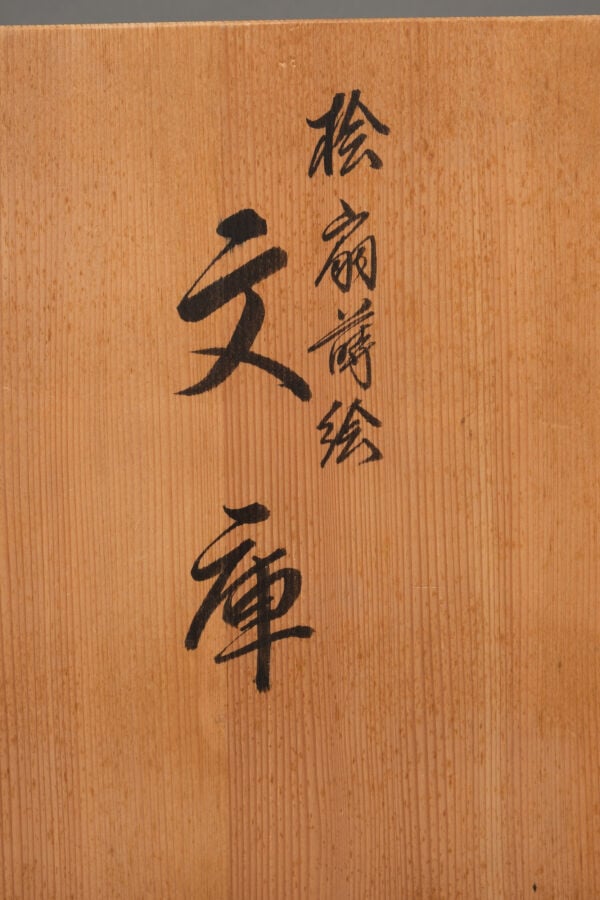 桧扇蒔絵
文庫